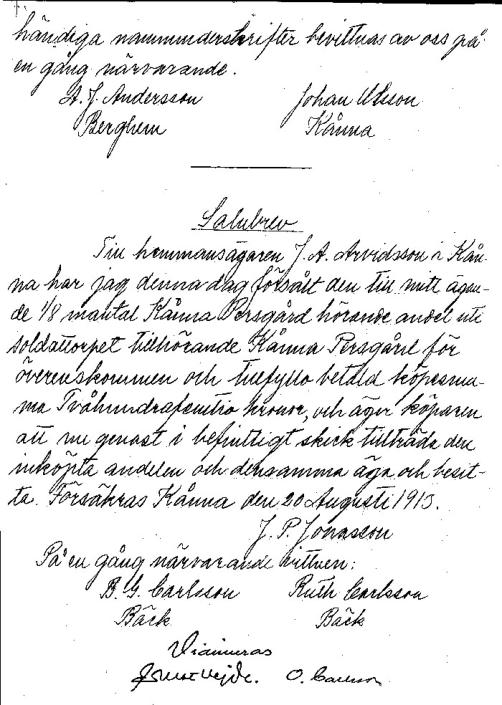 händiga namnunderskrifter bevittnas av oss på
en gång närvarande.
A. J. Andersson Johan Olsson
Berghem Kånna
Salubrev
Till hemmansägaren J. A. Arvidsson i Kån-
na har jag denna dag försålt den till mitt ägan-
de 1/8 mantal Kånna Persgård hörande andel uti
soldattorpet tillhörande Kånna Persgård för
överenskommen och tillfyllo betald köpesum-
ma Tvåhundrafemtio kronor, och äger köparen
att nu genast i befintligt skick tillträda den
inköpta andelen och densamma äga och besit-
ta. Försäkras Kånna den 20 Augusti 1913.
J. P. Jonasson
På en gång närvarande vittnen:
B. G. Carlsson Ruth Carlsson
Bäck Bäck
Vidimeras
O. Carlsson